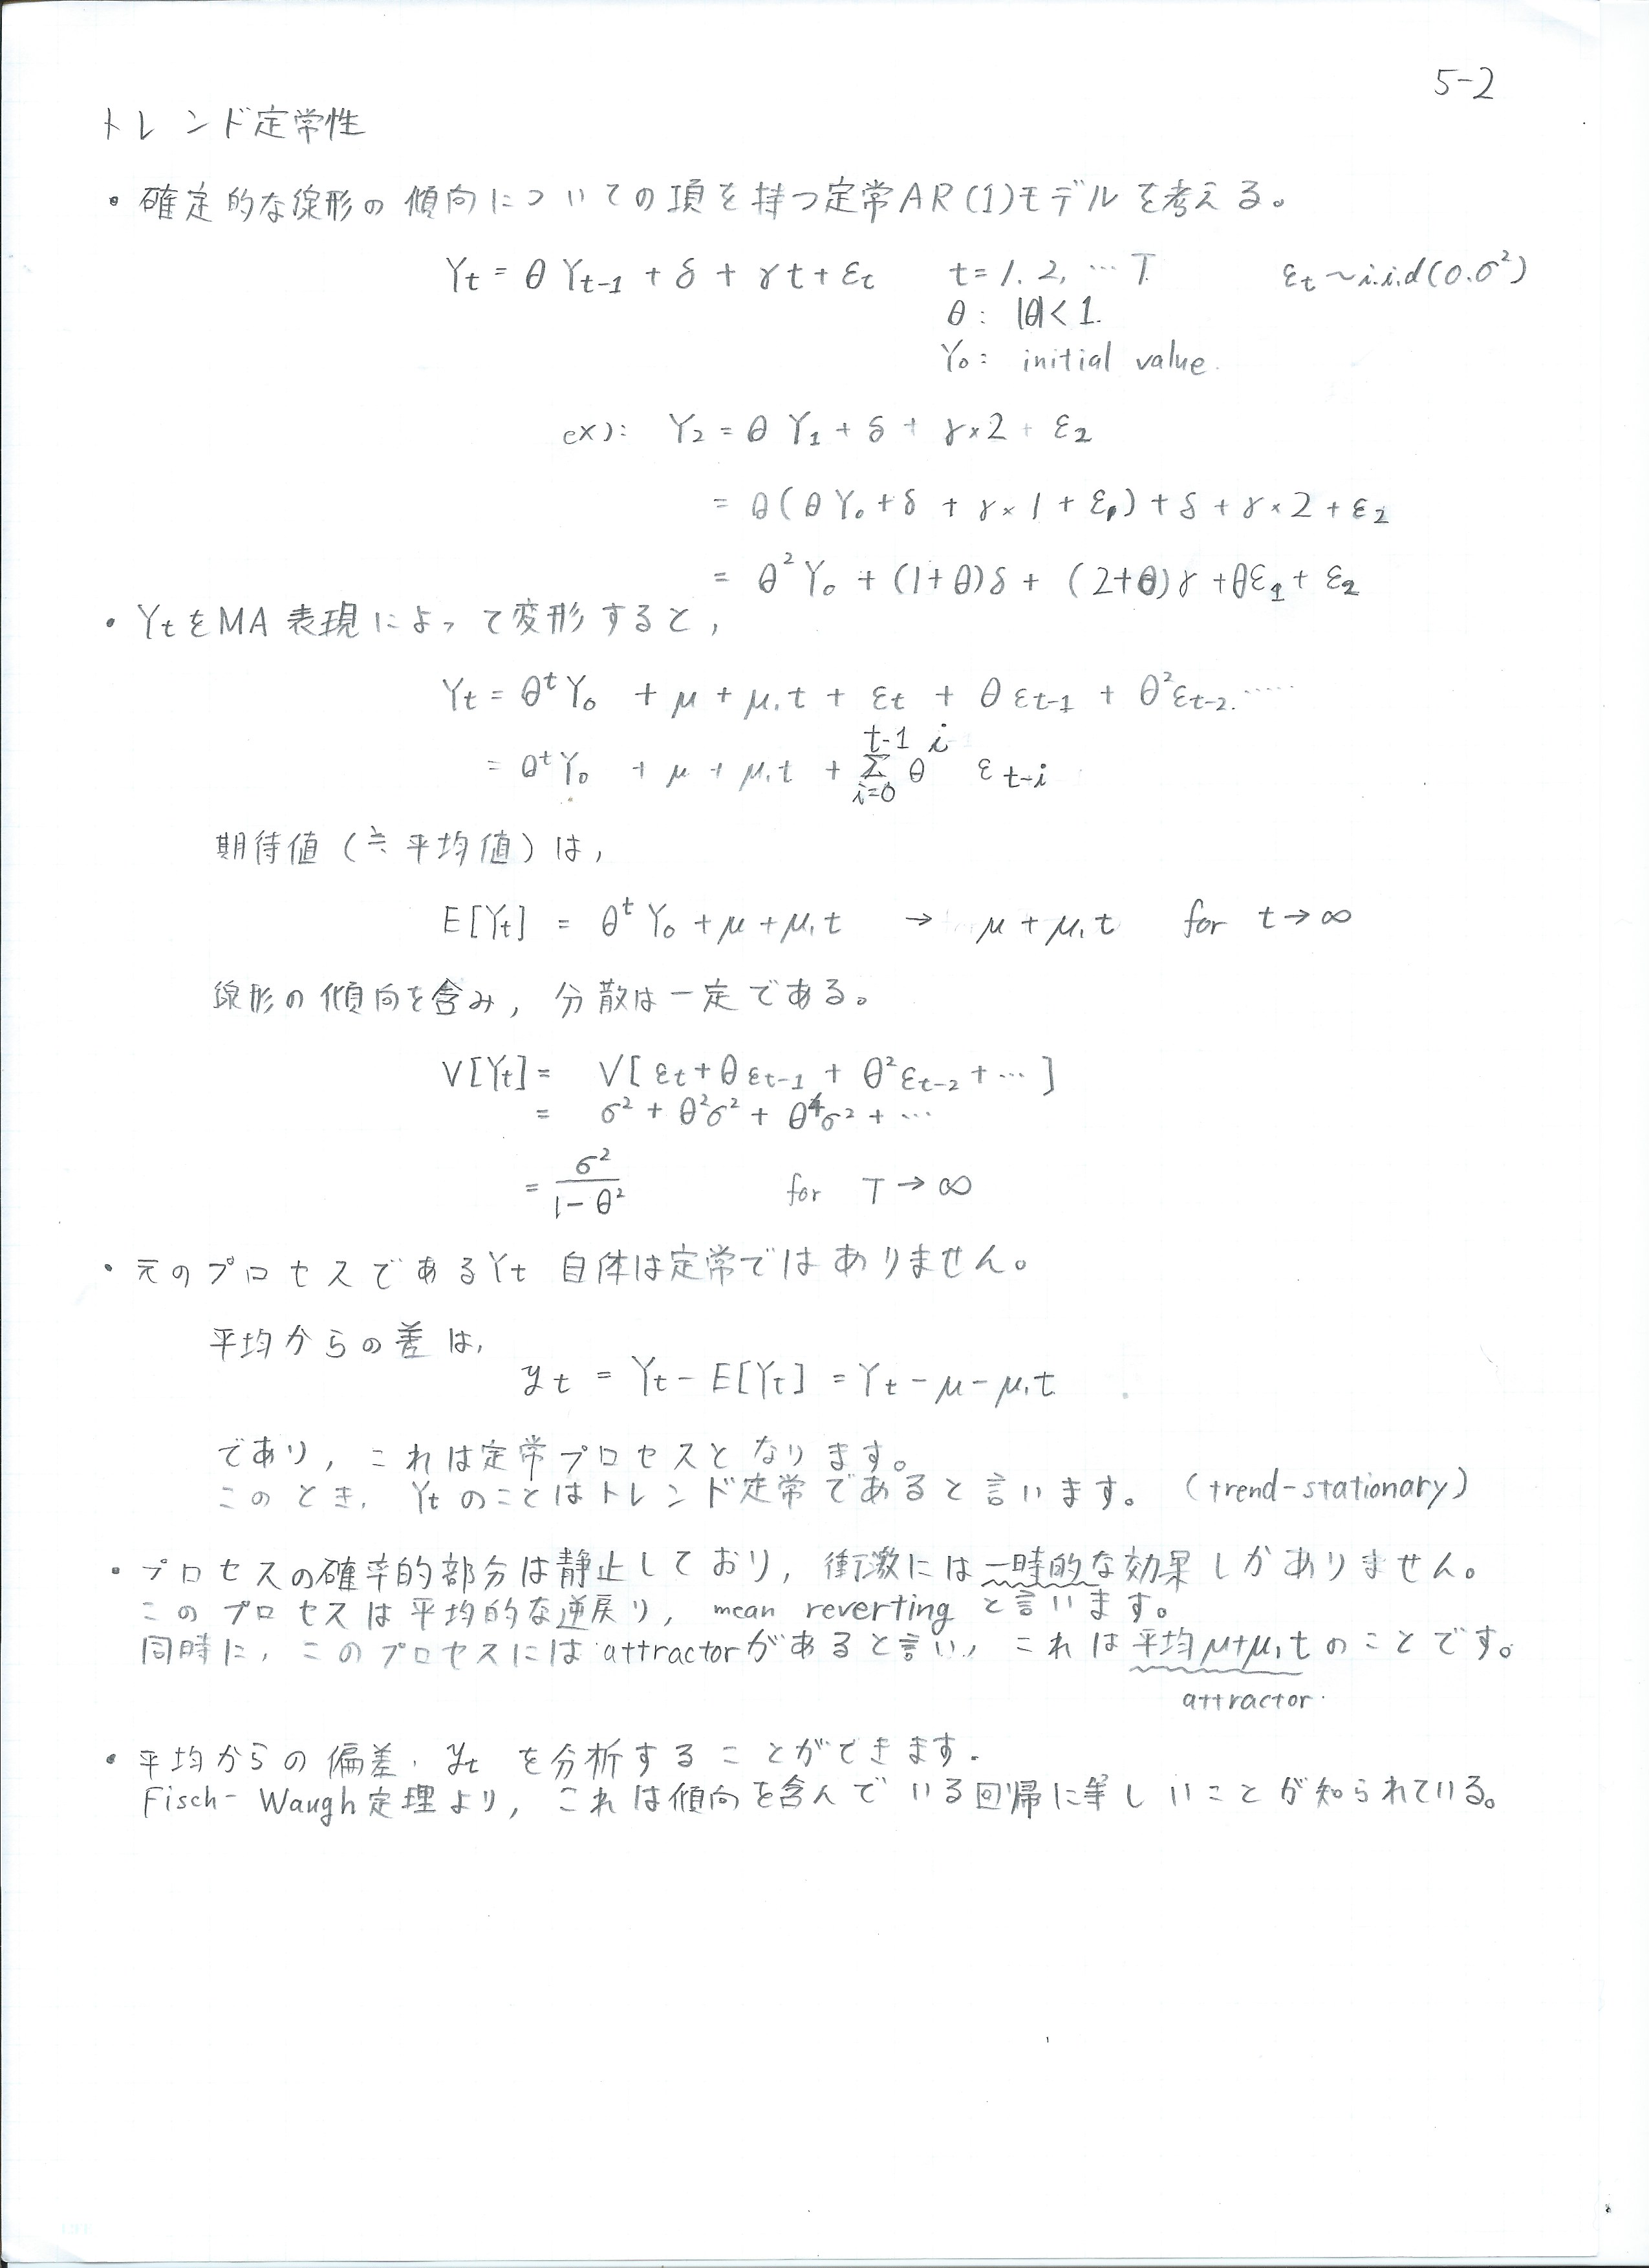 5-2
トレンド定常性
・確定的な線形の傾向についての項を持つ定常AR(1)モデルを考える。
Yt = θ Yt-1 + δ + γt + εt   t = 1. 2, … T   εt ~ i.i.d(0.σ²)
θ : |θ| < 1.
Y₀ : initial value.
ex): Y₂ = θ Y₁ + δ + γ×2 + ε₂
= θ(θY₀ + δ + γ×1 + ε₁) + δ + γ×2 + ε₂
= θ²Y₀ + (1+θ)δ + (2+θ)γ + θε₁ + ε₂
・YtをMA表現によって変形すると,
Yt = θᵗY₀ + μ + μ₁t + εt + θεt-1 + θ²εt-2.……
= θᵗY₀ + μ + μ₁t + Σ_{i=0}^{t-1} θ^i εt-i
期待値(≒平均値)は,
E[Yt] = θᵗY₀ + μ + μ₁t → μ + μ₁t for t→∞
線形の傾向を含み, 分散は一定である。
V[Yt] = V[εt + θεt-1 + θ²εt-2 + …]
= σ² + θ²σ² + θ⁴σ² + …
= σ²/(1-θ²)   for T→∞
・元のプロセスであるYt 自体は定常ではありません。
平均からの差は,
yt = Yt - E[Yt] = Yt - μ - μ₁t
であり, これは定常プロセスとなります。
このとき, Ytのことはトレンド定常であると言います。(trend-stationary)
・プロセスの確率的部分は静止しており, 衝激には一時的な効果しかありません。
このプロセスは平均的な逆戻り, mean reverting と言います。
同時に, このプロセスにはattractorがあると言い, これは平均μ+μ₁tのことです。
attractor.
・平均からの偏差. yt を分析することができます.
Fisch-Waugh定理より, これは傾向を含んでいる回帰に等しいことが知られている。